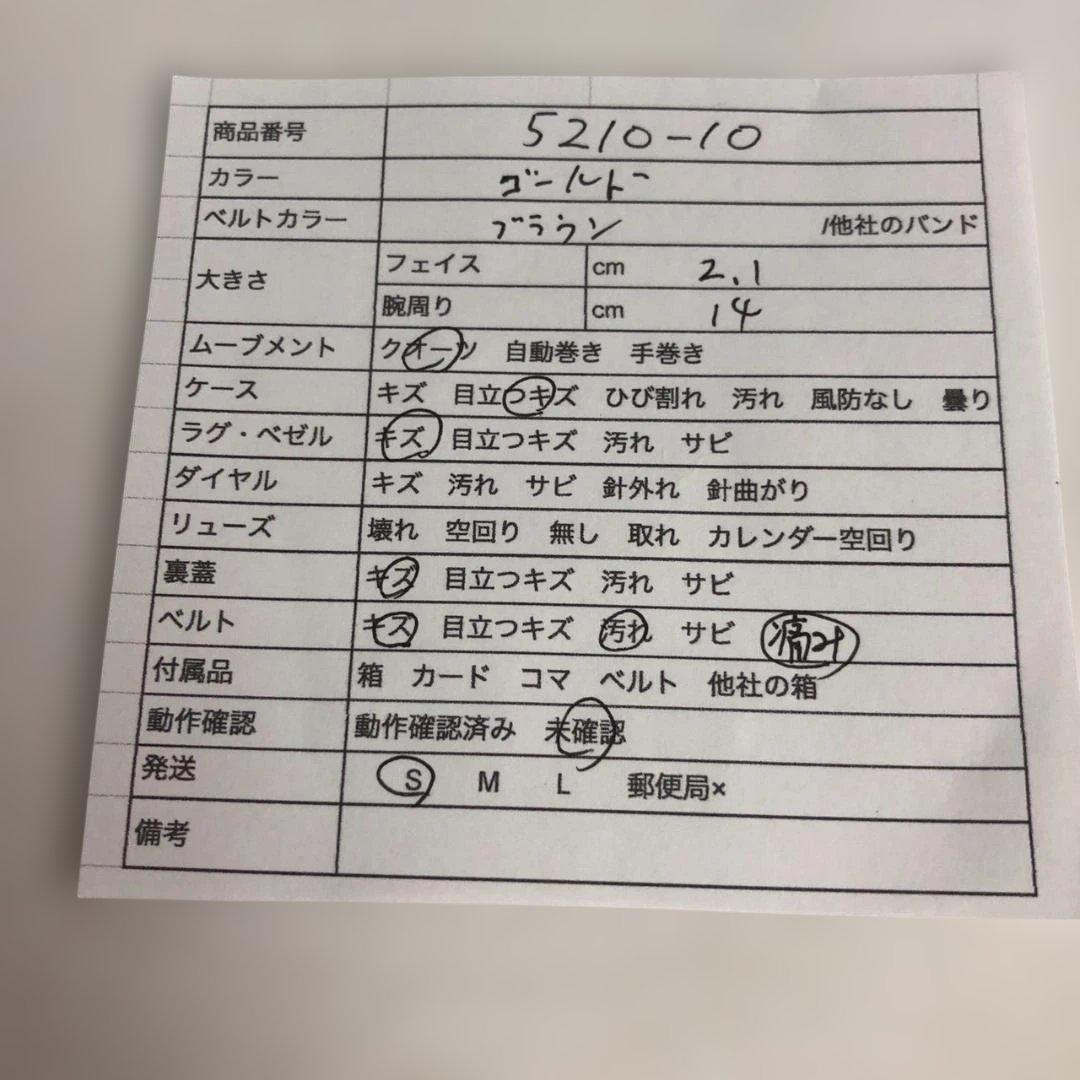 商品番号 5210-10
カラー ゴールド
ベルトカラー ブラウン /他社のバンド
大きさ フェイス cm 2.1
腕周り cm 14
ムーブメント クオーツ 自動巻き 手巻き
ケース キズ 目立つキズ ひび割れ 汚れ 風防なし 曇り
ラグ・ベゼル キズ 目立つキズ 汚れ サビ
ダイヤル キズ 汚れ サビ 針外れ 針曲がり
リューズ 壊れ 空回り 無し 取れ カレンダー空回り
裏蓋 キズ 目立つキズ 汚れ サビ
ベルト キズ 目立つキズ 汚れ サビ 痛み
付属品 箱 カード コマ ベルト 他社の箱
動作確認 動作確認済み 未確認
発送 S M L 郵便局×
備考